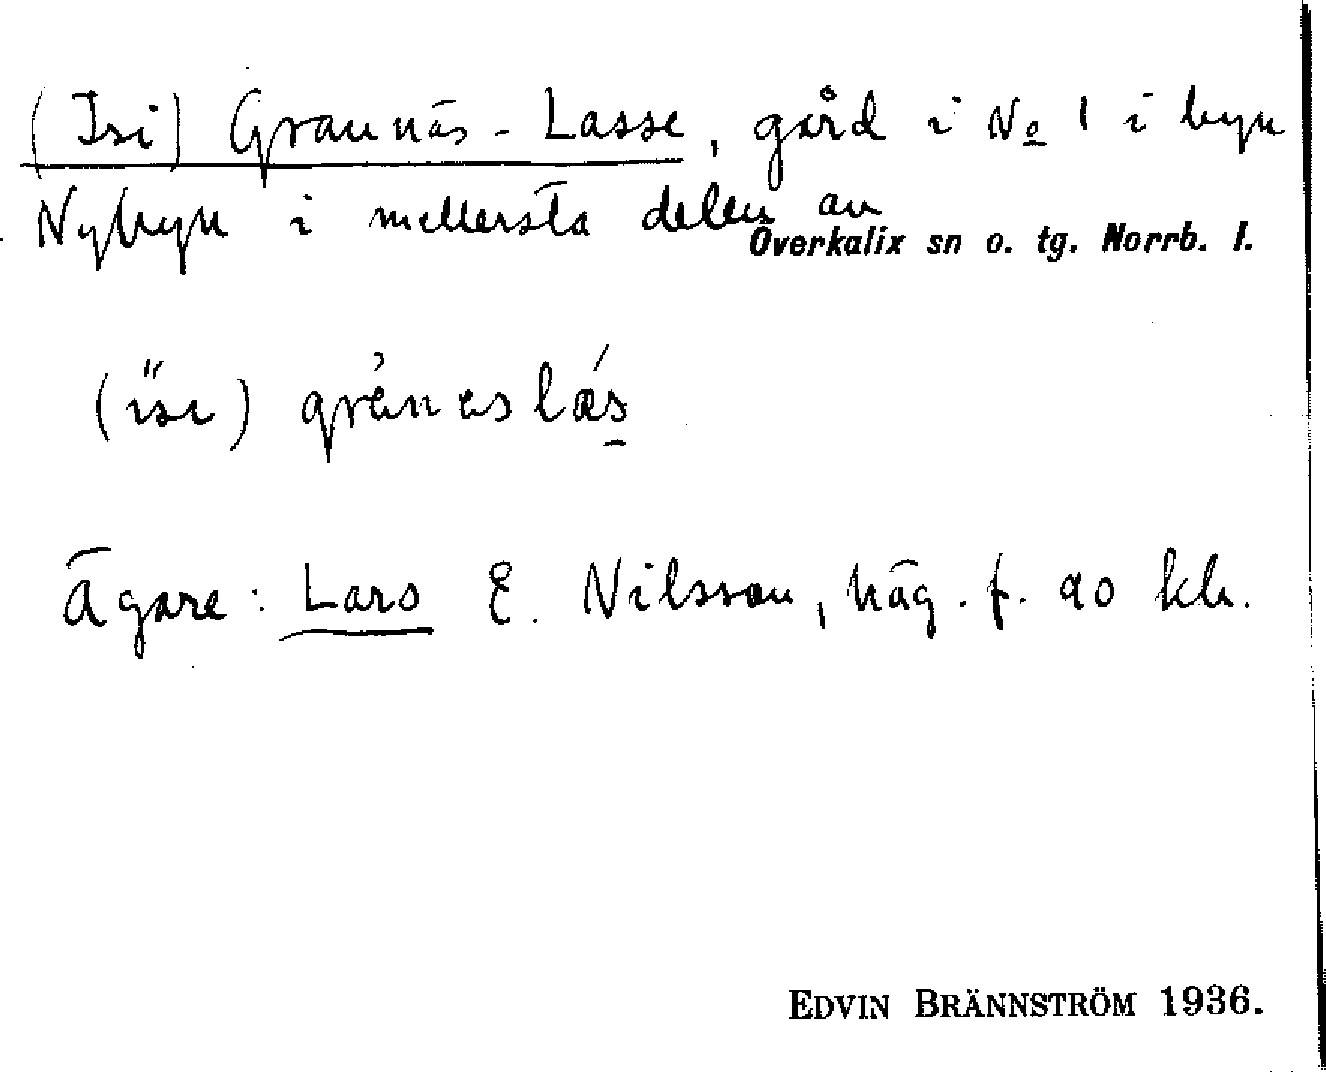 (Isi) Graunäs-Lasse, gård i No 1 i byn
Nybyn i mellersta delen av
Överkalix sn o. tg. Norrb. l.
(isi)
Ägare: Lars E. Nilsson, häg. f. 90 kh.
EDVIN BRÄNNSTRÖM 1936.